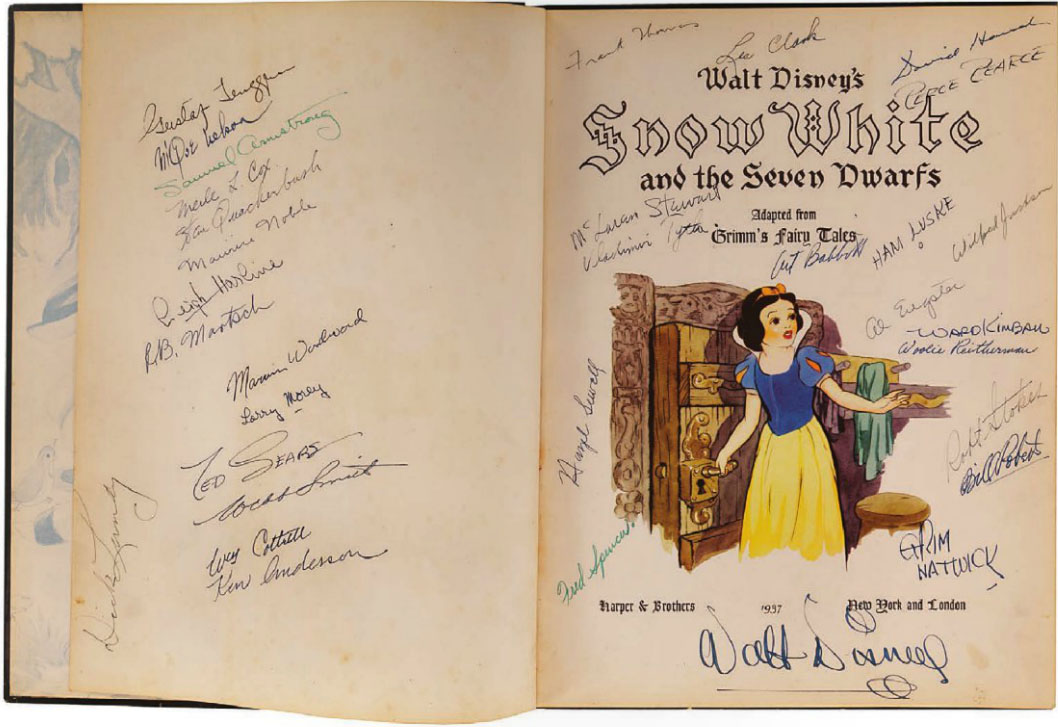 Gustaf Tenggren
McLaren Stewart
Samuel Armstrong
Merle L. Cox
Stan Quackenbush
Maurice Noble
Leigh Harline
Marvin Woodward
Larry Morey
TED SEARS
Webb Smith
Ken Anderson
Dick Lundy
Frank Thomas
Les Clark
David Hannah
PERCE PEARCE
Walt Disney's
Snow White
and the Seven Dwarfs
Adapted from
Grimm's Fairy Tales
Vladimir Tytla
Art Babbitt
HAM LUSKE
Wilfred Jackson
Al Eugster
WARD KIMBALL
Woolie Reitherman
Hazel Sewell
Bill Roberts
Fred Spencer
GRIM
NATWICK
Harper & Brothers 1937 New York and London
Walt Disney